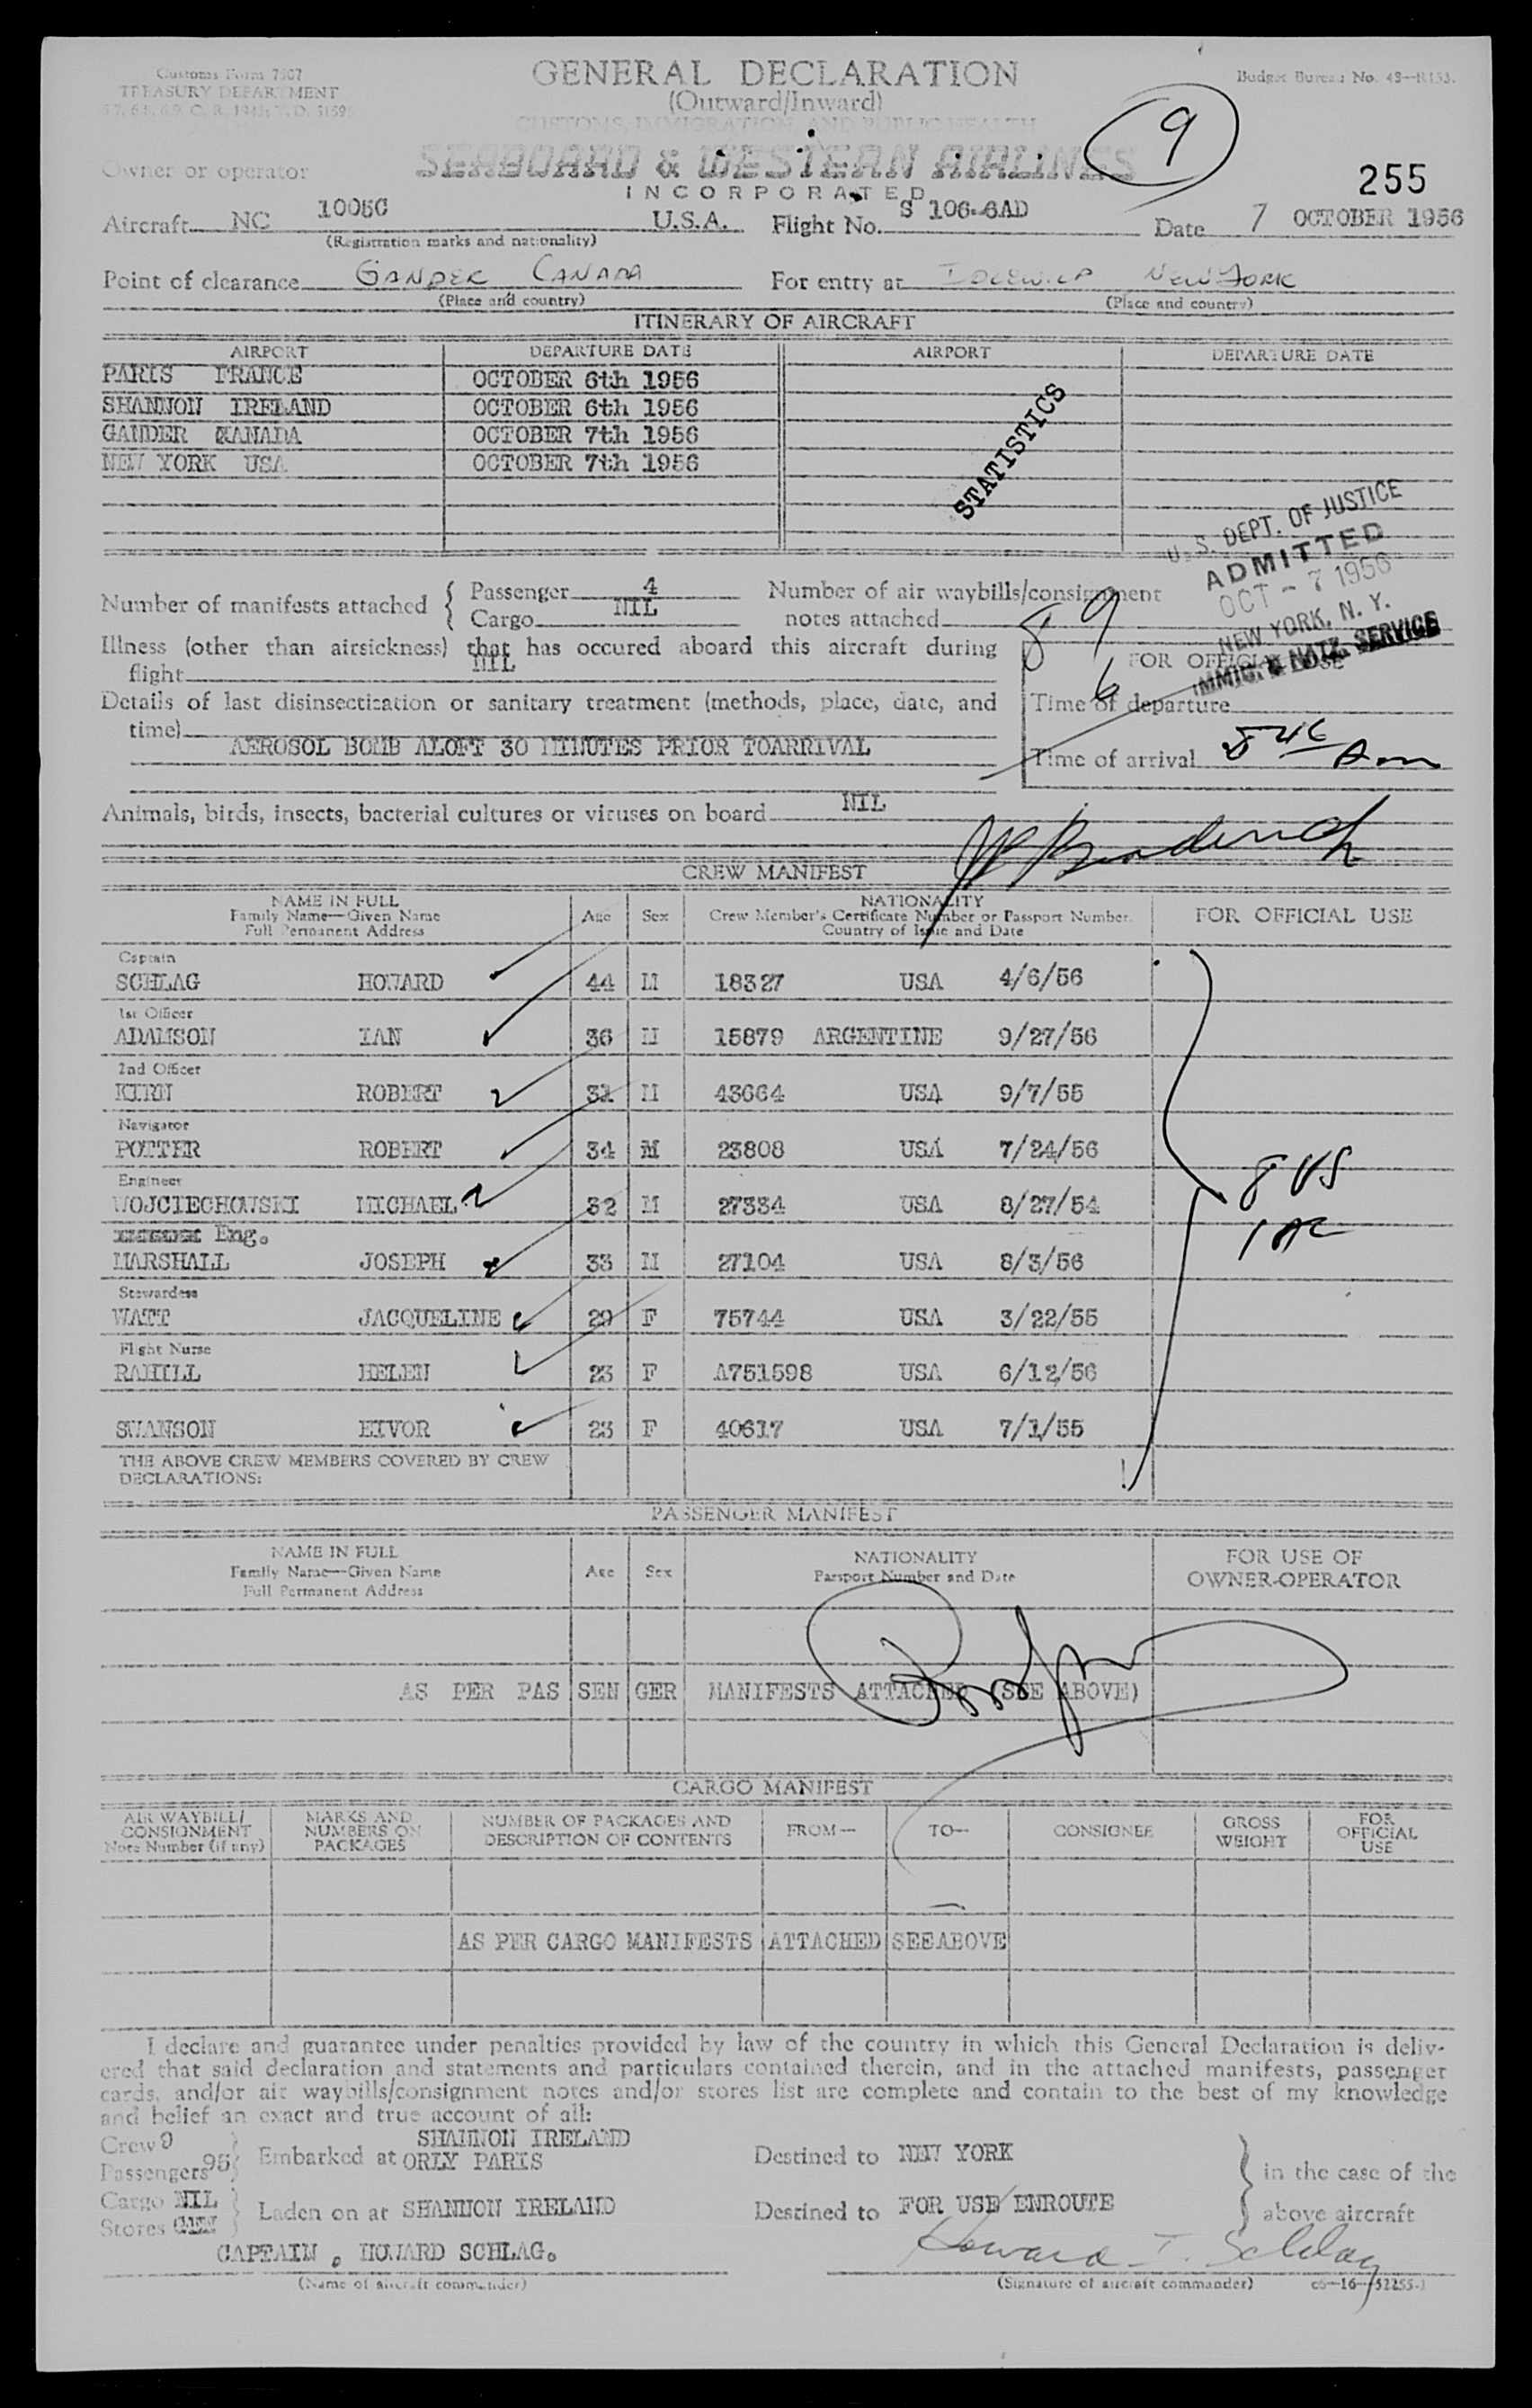 Customs Form 7507
TREASURY DEPARTMENT
GENERAL DECLARATION
(Outward/Inward)
CUSTOMS, IMMIGRATION, AND PUBLIC HEALTH
Budget Bureau No. 48—R153.
9
Owner or operator
SEABOARD & WESTERN AIRLINES
INCORPORATED
255
Aircraft NC 1005C U.S.A. Flight No. S 106-6AD Date 7 OCTOBER 1956
(Registration marks and nationality)
Point of clearance GANDER CANADA For entry at IDLEWILD NEW YORK
(Place and country) (Place and country)
ITINERARY OF AIRCRAFT
AIRPORT DEPARTURE DATE AIRPORT DEPARTURE DATE
PARIS FRANCE OCTOBER 6th 1956
SHANNON IRELAND OCTOBER 6th 1956
GANDER CANADA OCTOBER 7th 1956
NEW YORK USA OCTOBER 7th 1956
STATISTICS
U. S. DEPT. OF JUSTICE
ADMITTED
OCT - 7 1956
NEW YORK, N. Y.
IMMIG. & NATZ. SERVICE
Number of manifests attached { Passenger 4 Number of air waybills/consignment
Cargo NIL notes attached
89
6
Illness (other than airsickness) that has occured aboard this aircraft during
flight NIL
FOR OFFICIAL USE
Details of last disinsectization or sanitary treatment (methods, place, date, and
time) AEROSOL BOMB ALOFT 30 MINUTES PRIOR TOARRIVAL
Time of departure
Time of arrival 8 46 Am
Animals, birds, insects, bacterial cultures or viruses on board NIL
CREW MANIFEST
NAME IN FULL
Family Name—Given Name
Full Permanent Address
Age Sex
NATIONALITY
Crew Member's Certificate Number or Passport Number.
Country of Issue and Date
FOR OFFICIAL USE
Captain
SCHLAG HOWARD 44 M 18327 USA 4/6/56
1st Officer
ADAMSON IAN 36 M 15879 ARGENTINE 9/27/56
2nd Officer
KIRN ROBERT 31 M 43664 USA 9/7/55
Navigator
POTTER ROBERT 34 M 23808 USA 7/24/56
Engineer
WOJCIECHOWSKI MICHAEL 32 M 27334 USA 8/27/54
8 US
Eng.
MARSHALL JOSEPH 33 M 27104 USA 8/3/56
Stewardess
WATT JACQUELINE 29 F 75744 USA 3/22/55
Flight Nurse
RAHILL HELEN 23 F A751598 USA 6/12/56
SWANSON EIVOR 23 F 40617 USA 7/1/55
THE ABOVE CREW MEMBERS COVERED BY CREW
DECLARATIONS:
PASSENGER MANIFEST
NAME IN FULL
Family Name—Given Name
Full Permanent Address
Age Sex
NATIONALITY
Passport Number and Date
FOR USE OF
OWNER-OPERATOR
AS PER PAS SEN GER MANIFESTS ATTACHED (SEE ABOVE)
CARGO MANIFEST
AIR WAYBILL/
CONSIGNMENT
Note Number (if any)
MARKS AND
NUMBERS ON
PACKAGES
NUMBER OF PACKAGES AND
DESCRIPTION OF CONTENTS
FROM— TO— CONSIGNEE
GROSS
WEIGHT
FOR
OFFICIAL
USE
AS PER CARGO MANIFESTS ATTACHED SEEABOVE
I declare and guarantee under penalties provided by law of the country in which this General Declaration is deliv-
ered that said declaration and statements and particulars contained therein, and in the attached manifests, passenger
cards, and/or air waybills/consignment notes and/or stores list are complete and contain to the best of my knowledge
and belief an exact and true account of all:
Crew 9
Passengers 95
Embarked at SHANNON IRELAND
ORLY PARIS
Destined to NEW YORK
in the case of the
Cargo NIL
Stores
Laden on at SHANNON IRELAND
Destined to FOR USE ENROUTE
above aircraft
CAPTAIN . HOWARD SCHLAG.
Howard T. Schlag
(Name of aircraft commander) (Signature of aircraft commander) c6—16—52255-1